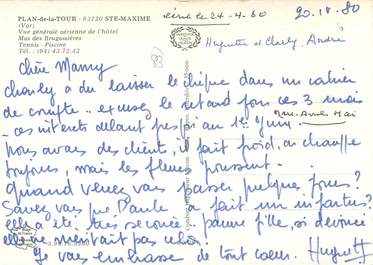 PLAN-de-la-TOUR - 83120 STE-MAXIME
(Var)
Vue générale aérienne de l'hôtel
Mas des Brugassières
Tennis - Piscine
Tél. (94) 43.72.42
écrit le 24-4-80
20.18.80
Huguette et Charly. André
Chère Mamy
Charly a dû laisser le chèque dans un cahier
de compte.. excusez le retard pour ces 3 mois
Mars Avril Mai
ces intérêts allant jusqu'au 1er Juin.
Nous avons des clients, il fait froid, on chauffe
toujours, mais les fleurs poussent -
Quand venez vous passer quelques jours?
Savez vous que Paule a fait un infarctus?
elle a été très secouée - pauvre fille, si dévouée
elle ne méritait pas cela!
Je vous embrasse de tout coeur. Huguette